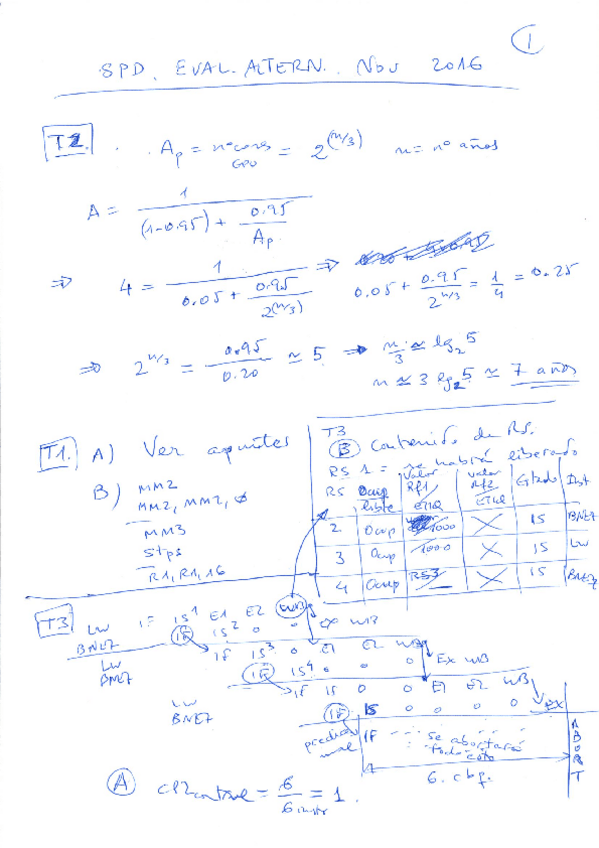 1
SPD. EVAL. ALTERN. Nov 2016
T2. Ap = nº cores GPU = 2^(n/3) n = nº años
A = 1 / ((1-0.95) + 0.95/Ap)
⇒ 4 = 1 / (0.05 + 0.95/2^(n/3)) ⇒ 0.05 + 0.95/2^(n/3) = 1/4 = 0.25
⇒ 2^(n/3) = 0.95/0.20 ≃ 5 ⇒ n/3 ≃ lg₂5
n ≃ 3 lg₂5 ≃ 7 años
T1. A) Ver apuntes
B) MM2
MM2, MM2, ∅
MM3
R1, R1, 16
T3
B Contenido de RS.
RS 1 = se habrá liberado
RS Ocup/libre Valor RF1/ETIQ Valor RF2/ETIQ Estado Inst
2 Ocup 1000 X IS BNEZ
3 Ocup 1000 X IS LW
4 Ocup RS3 X IS BNEZ
T3 LW IF IS¹ E1 E2 WB
BNEZ IF IS² 0 0 EX WB
LW IF IS³ 0 E1 E2 WB
BNEZ IF IS⁴ 0 0 0 EX WB
LW IF IS 0 0 E1 E2 WB
BNEZ IF IS 0 0 0 0 EX
predicción mal IF se abortará todo esto ABORT
6. cbf.
A = 6/6 instr = 1.